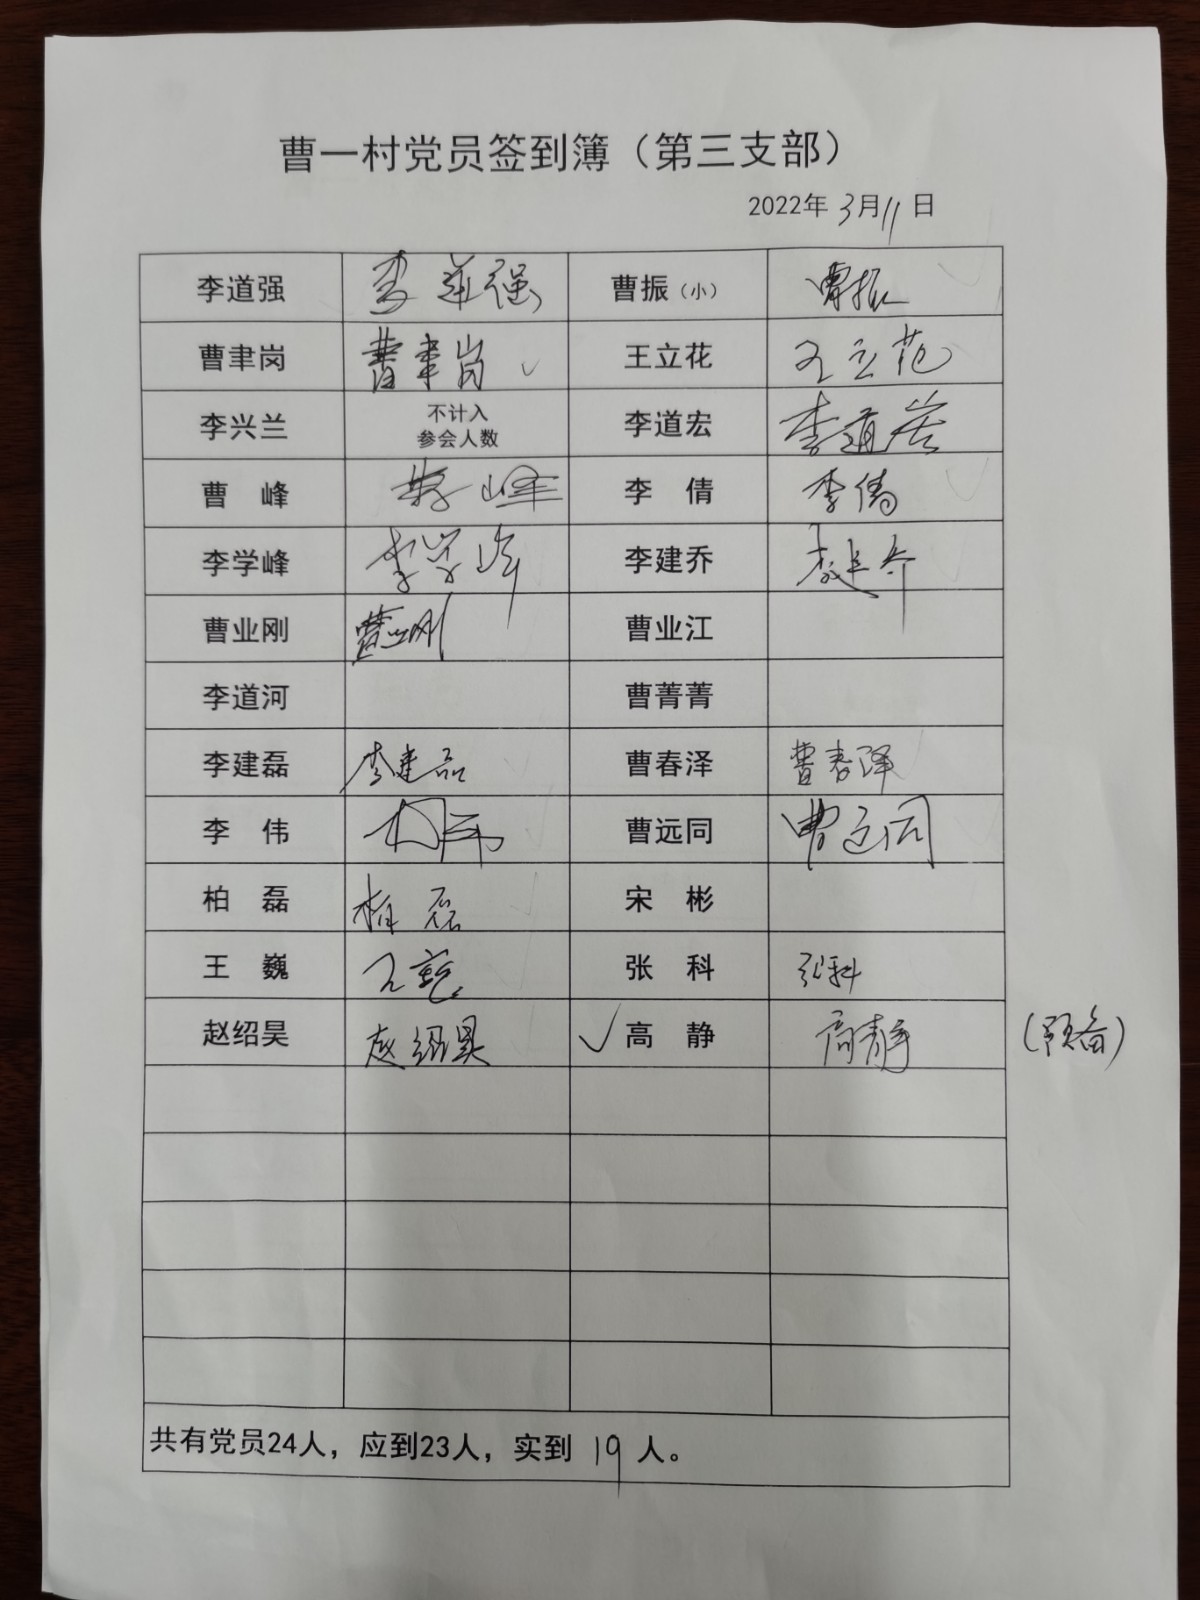 曹一村党员签到簿（第三支部）
2022年 3月11日
李道强 李道强 曹振（小） 曹振
曹聿岗 曹聿岗 王立花 王立花
李兴兰 不计入
参会人数
李道宏 李道宏
曹 峰 曹峰 李 倩 李倩
李学峰 李学峰 李建乔 李建乔
曹业刚 曹业刚 曹业江
李道河 曹菁菁
李建磊 李建磊 曹春泽 曹春泽
李 伟 曹远同 曹远同
柏 磊 柏磊 宋 彬
王 巍 王巍 张 科 张科
赵绍昊 赵绍昊 ✓ 高 静 高静 （预备）
共有党员24人，应到23人，实到 19 人。